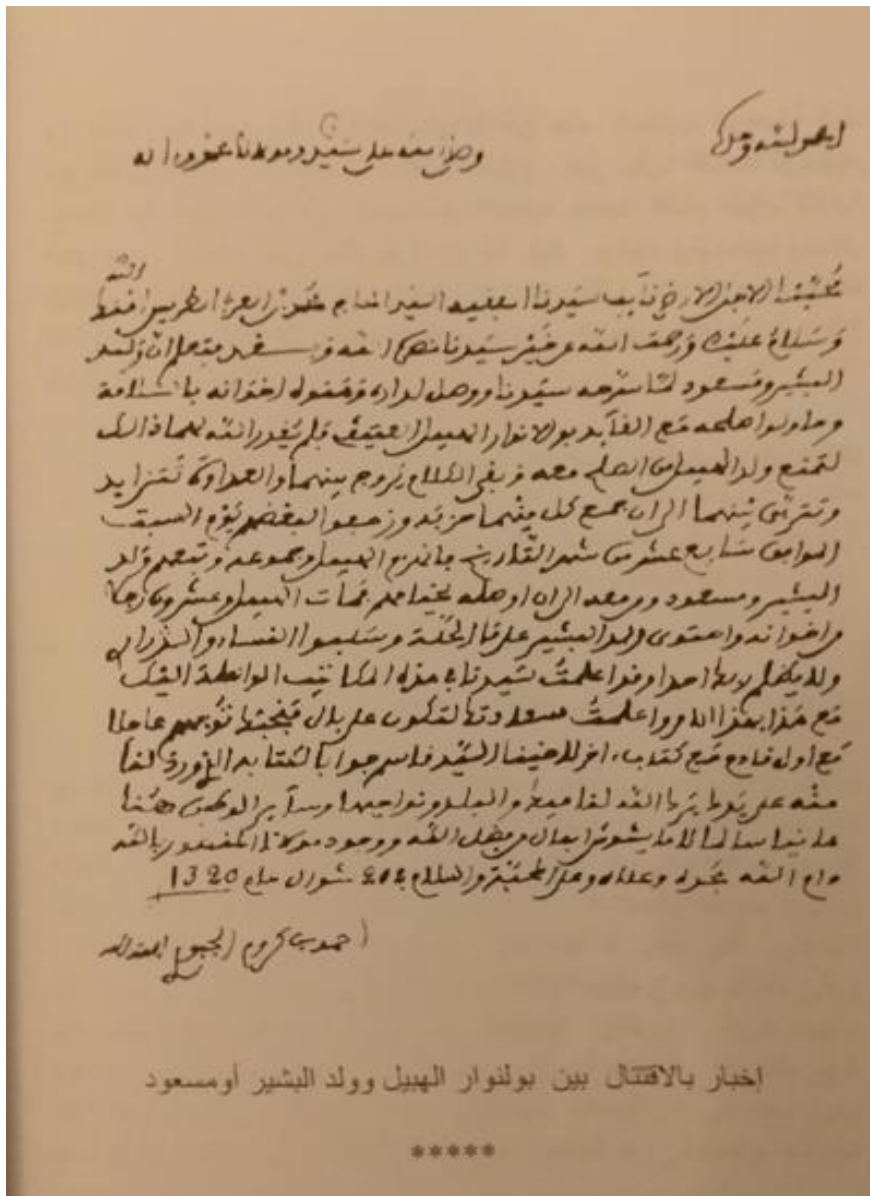 الحمد لله وحده
وصلى الله على سيدنا ومولانا محمد وآله
محبنا الأجل الأرضى نايب سيدنا الفقيه السيد الحاج محمد بن العربي الطريس امنك الله
وسلام عليك ورحمت الله عن خير سيدنا نصره الله وبعد فبعلم ان ولد
البشير ومسعود لما سرحه سيدنا ووصل لداره وقبوله اخوانه بالسلامة
وحاولوا صلحه مع القآيد بو لانوار الهبيل العتيقي فلم يقدر الله لهما ذالك
لتمنع ولد الهبيل من الصلح معه وبقى الكلام يروج بينهما والعداوة تتزايد
وتترقى بينهما الى ان جمع كل منهما حزبه وزحفوا لبعضهم يوم السبت
الموافق سابع عشر من شهر التاريخ فانهزم الهبيل وجموعه وتبعهم ولد
البشير ومسعود ومن معه الى ان اوصله لخيامهم فمات الهبيل وعشرون رجلا
من اخوانه واحتوى ولد البشير على المحلة وسلبوا النساء والذراري
ولم يكلم احدا وقد اعلمت سيدنا في هذه المكاتيب الواصلة اليك
مع هذا بهذا الامر واعلمت لتكون على بال فبمحبتنا توجههم عاجلا
مع اول قادم مع كتاب اخر للامينا السيد قاسم جوابا لكتابه
منه على يد والبلد ونواحيها وساير الوطن هنا
هانيا سالما لا ما يشوش البال من فضل الله ووجود مولانا المنصور بالله
دام الله عزه وعلاه وعلى المحبة والسلام في 24 شوال عام 1320
احمد بن كروم الجبوري لطف الله به
إخبار بالاقتتال بين بولنوار الهبيل وولد البشير أومسعود
*****